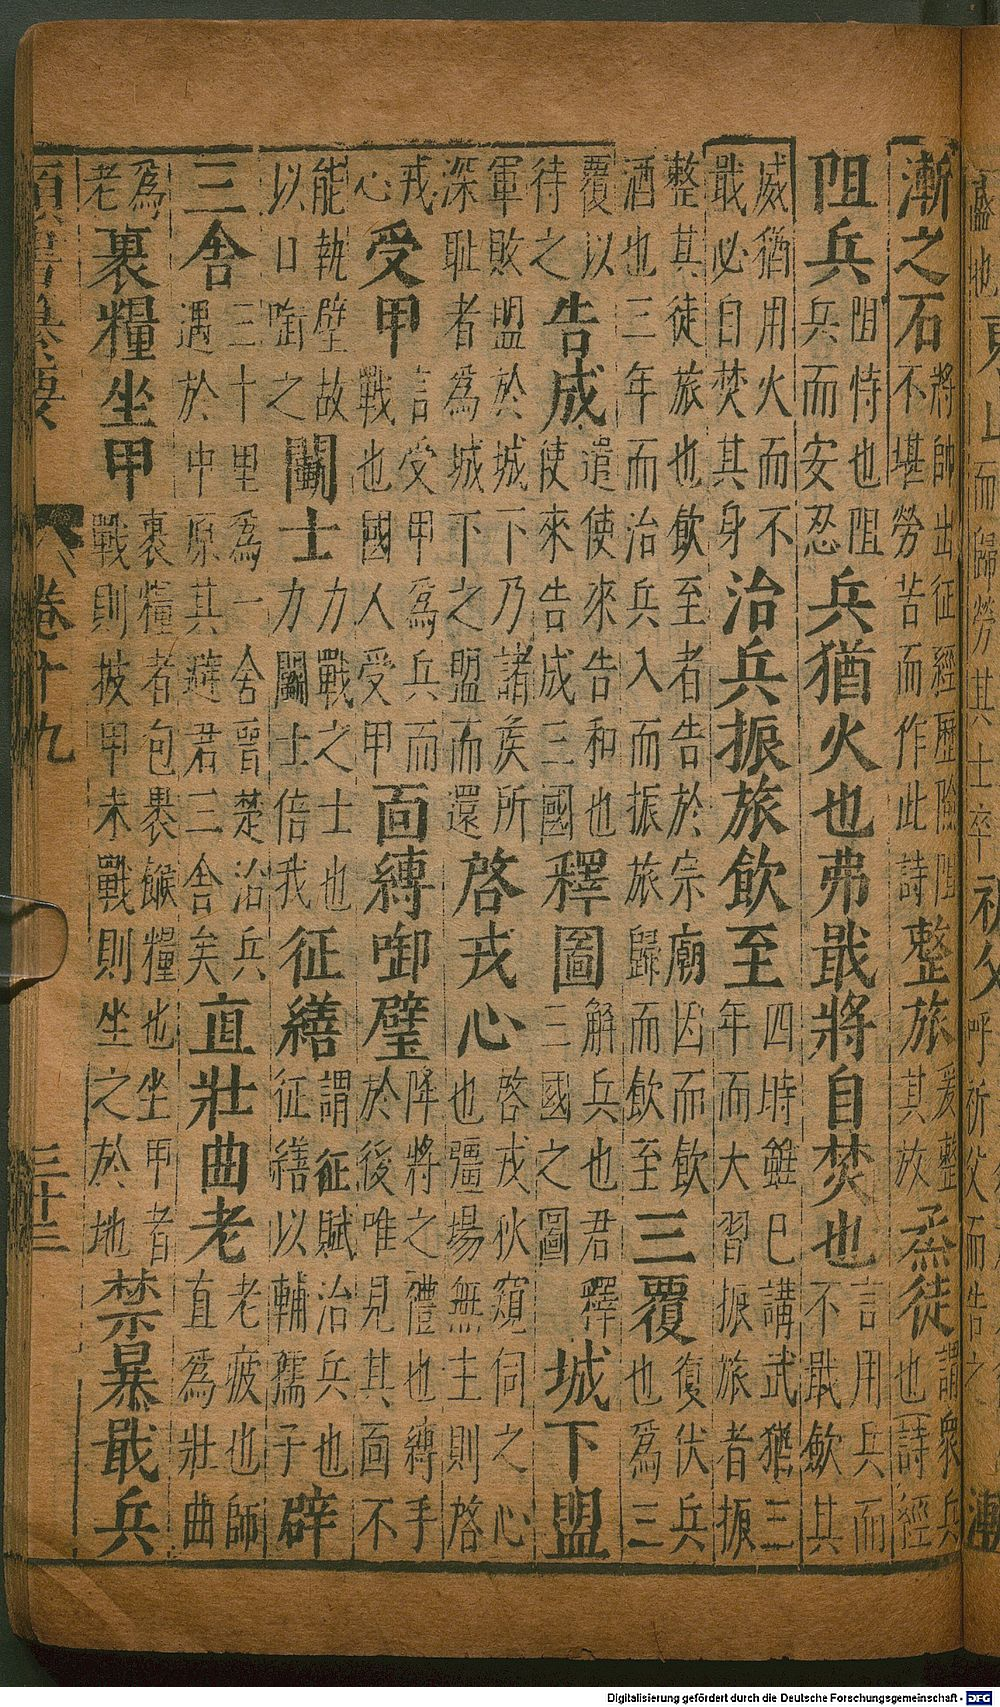 而歸勞其士卒祈父呼祈父而告之漸
漸之石將帥出征經歷險阻不堪勞苦而作此詩整旅爰整其旅烝徒謂衆兵也詩經
阻兵阻恃也阻兵而安忍兵猶火也弗戢將自焚也言用兵而不戢歛其
威猶用火而不戢必自焚其身治兵振旅飲至四時雖巳講武猶三年而大習振旅者振
整其徒旅也飲至者告於宗廟因而飲酒也三年而治兵入而振旅歸而飲至三覆復伏兵也為三
覆以待之告成遣使來告和也使來告成三國釋圖解兵也君釋三國之圖城下盟
軍敗盟於城下乃諸矦所深耻者為城下之盟而還啓戎心啓戎狄窺伺之心也疆場無主則啓
戎心受甲言受甲為兵而戰也國人受甲面縛啣璧降將之禮也縛手於後唯見其面不
能執璧故以口啣之鬬士力戰之士也力鬬士倍我征繕謂征賦治兵也征繕以輔孺子辟
三舍三十里為一舍晉楚治兵遇於中原其避君三舍矣直壯曲老老疲也師直為壯曲
為老裹糧坐甲裹糧者包裹餱糧也坐甲者戰則披甲未戰則坐之於地禁暴戢兵
卷十九 三十三
Digitalisierung gefördert durch die Deutsche Forschungsgemeinschaft - DFG